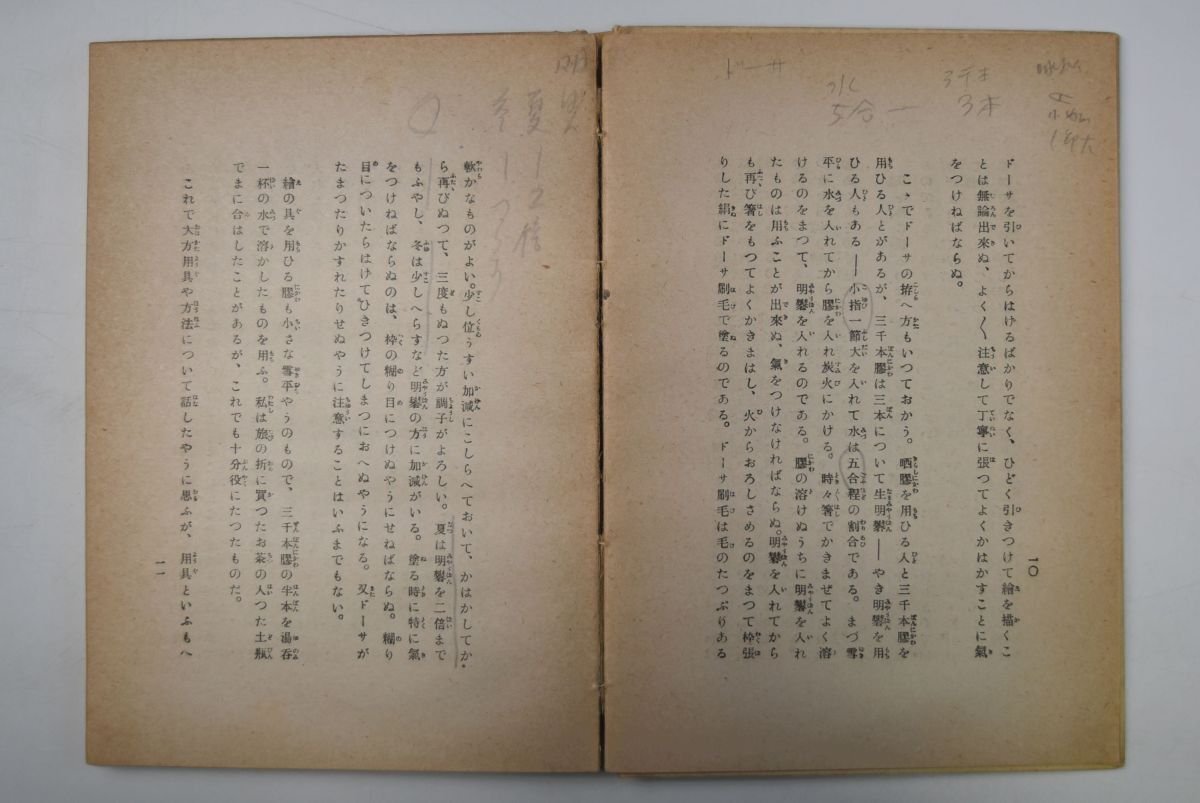 ドーサ
水
5合一
三千本
3本
ドーサを引いてからはけるばかりでなく、ひどく引きつけて繪を描くこ
とは無論出來ぬ、よく〱注意して丁寧に張つてよくかはかすことに氣
をつけねばならぬ。
こゝでドーサの拵へ方もいつておかう。晒膠を用ひる人と三千本膠を
用ひる人とがあるが、三千本膠は三本について生明礬――やき明礬を用
ひる人もある――小指一節大を入れて水は五合程の割合である。まづ雪
平に水を入れてから膠を入れ炭火にかける。時々箸でかきまぜてよく溶
けるのをまつて、明礬を入れるのである。膠の溶けぬうちに明礬を入れ
たものは用ふことが出來ぬ、氣をつけなければならぬ。明礬を入れてから
も再び箸をもつてよくかきまはし、火からおろしさめるのをまつて枠張
りした絹にドーサ刷毛で塗るのである。ドーサ刷毛は毛のたつぷりある
一〇
夏
2倍
冬
軟かなものがよい。少し位うすい加減にこしらへておいて、かはかしてか
ら再びぬつて、三度もぬつた方が調子がよろしい。夏は明礬を二倍まで
もふやし、冬は少しへらすなど明礬の方に加減がいる。塗る時に特に氣
をつけねばならぬのは、枠の糊り目につけぬやうにせねばならぬ。糊り
目についたらはけてひきつけてしまつにおへぬやうになる。又ドーサが
たまつたりかすれたりせぬやうに注意することはいふまでもない。
繪の具を用ひる膠も小さな雪平やうのもので、三千本膠の半本を湯呑
一杯の水で溶かしたものを用ふ。私は旅の折に買つたお茶の入つた土瓶
でまに合はしたことがあるが、これでも十分役にたつたものだ。
これで大方用具や方法について話したやうに思ふが、用具といふもへ
一一